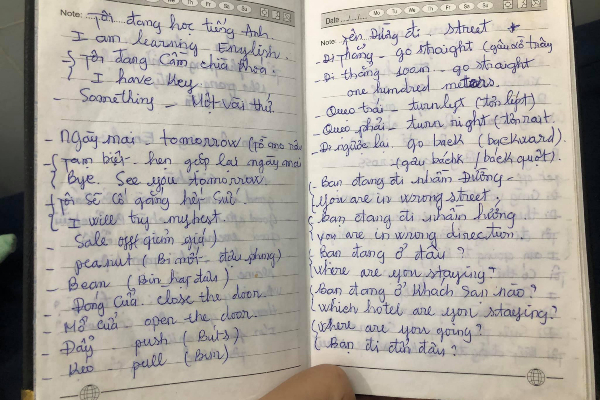 Mo Tu We Th Fr Sa Su
Note: Tôi đang học tiếng Anh
I am learning English.
Tôi đang Cầm chìa khóa.
I have key
Something - Một vài thứ
- Ngày mai - tomorrow
Tạm biệt - hẹn gặp lại ngày mai
Bye. See you tomorrow.
Tôi sẽ cố gắng hết sức.
I will try my best.
- Sale off giảm giá
- peanut (Bi nớt - đậu phộng)
- Bean (Bin hạt đậu)
- Đóng Cửa close the door.
- Mở cửa open the door.
- Đẩy push
- Kéo pull (Bun)
Date
Mo Tu We Th Fr Sa Su
Note: Tên Đường đi street
- Đi thẳng - go straight
- Đi thẳng 100m - go straight
one hundred meters.
- Queo trái - turn left
- Queo phải - turn right
- Đi ngược lại go back (backward)
- Bạn đang đi nhầm Đường -
you are in wrong street.
Bạn đang đi nhầm hướng
you are in wrong direction.
Bạn đang ở đâu?
where are you staying?
Bạn đang ở Khách Sạn nào?
which hotel are you staying?
where are you going?
Bạn đi đến đâu?